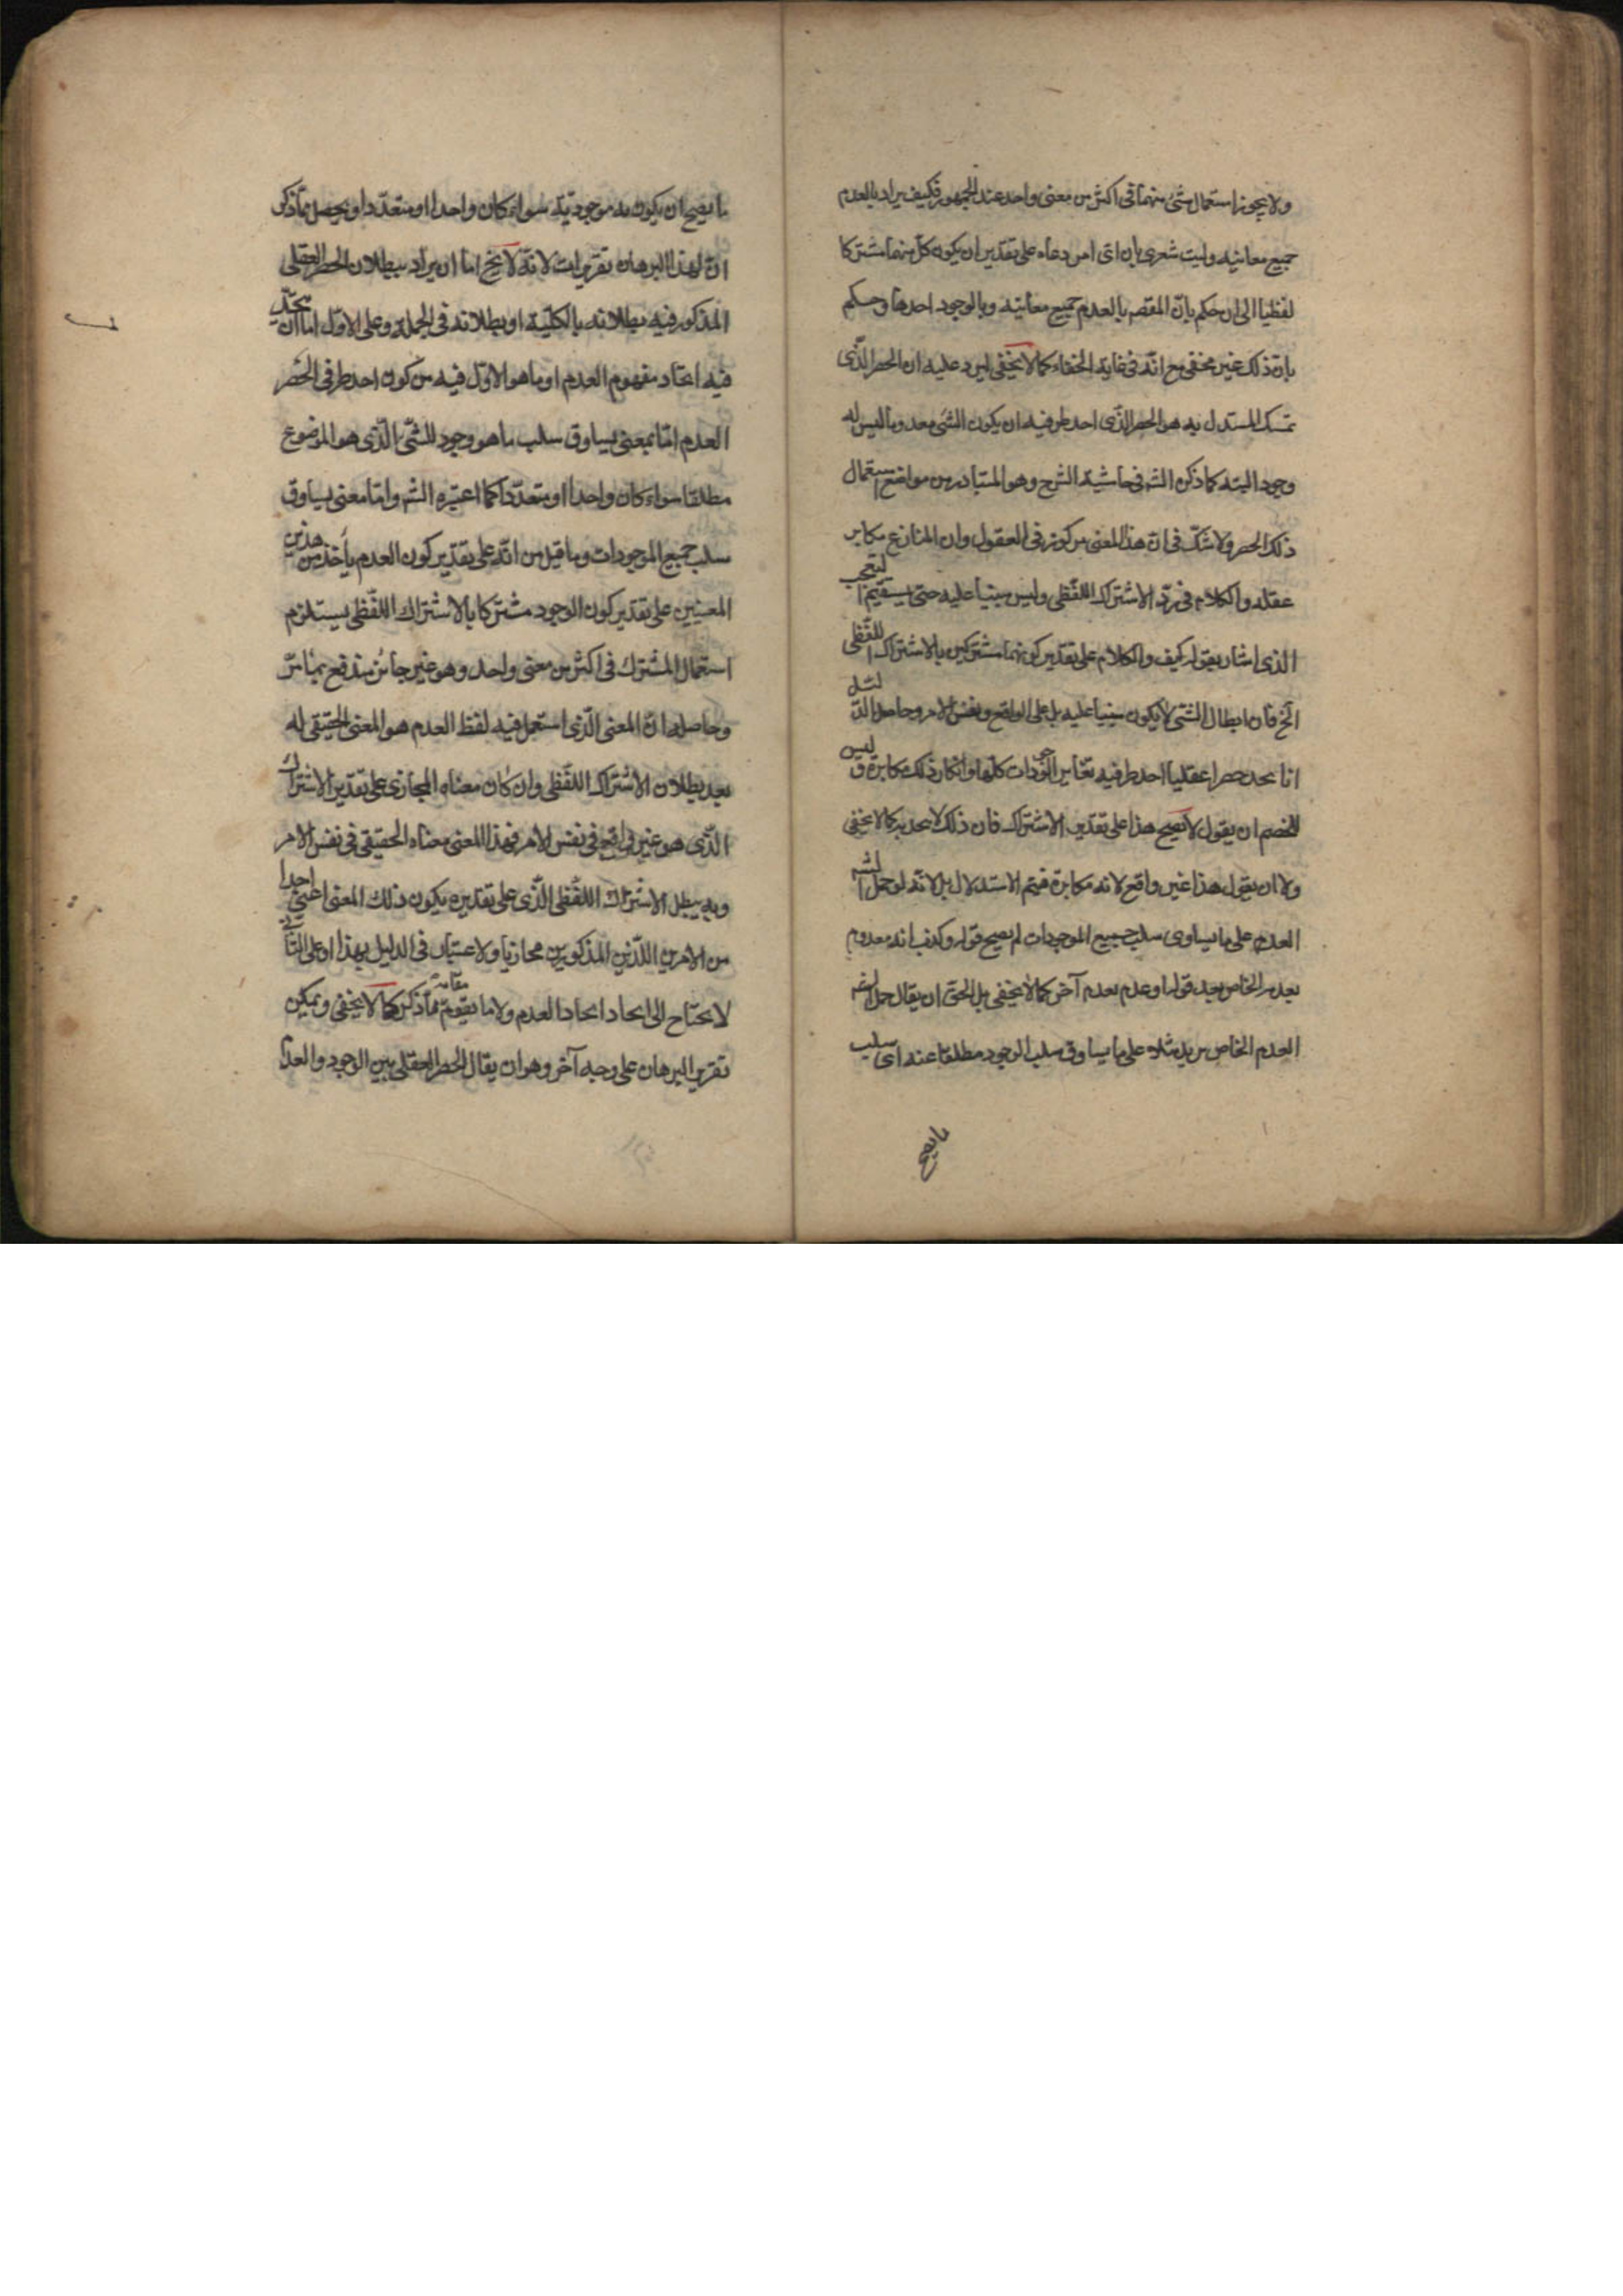 ولا يجوز استعمال شئ منهما فى اكثر من معنى واحد عند الجمهور فكيف يراد بالعدم
جميع معانيه وليت شعرى بان اى امر دعاه على تقدير ان يكون كل منهما مشتركا
لفظيا الى ان حكم بانّ المقصـ بالعدم جميع معانيه وبالوجود احدها وحكم
بانّ ذلك غير مخفى مع انّه فى غاية الخفاء كما لا يخفى ليرد عليه ان الحصر الذّى
تمسك المستدل به هو الحصر الذّى احد طرفيه ان يكون الشئ معدوما ليس له
وجود البتة كما ذكره الشـ فى حاشية الشرح وهو المتبادر من مواضع استعمال
ذلك الحصر ولا شكّ فى انّ هذا المعنى مركوز فى العقول وان المنازع مكابر
عقله والكلام فى ردّ الاشتراك اللّفظى وليس مبنيا عليه حتى يستقيم التعجب
الذى اشار بقوله كيف والكلام على تقدير كونهما مشتركين بالاشتراك اللفّظى
الخ فان ابطال الشئ لا يكون مبنيا عليه بل على الواقع ونفس الامر وحاصل الدّليل
انا نجد حصرا عقليا احد طرفيه تغاير الوجودات كلها وانكار ذلك مكابرة وليس
للخصم ان يقول لا يصح هذا على تقدير الاشتراك فان ذلك لا يجديه كما لا يخفى
ولا ان يقول هذا غير واقع لانه مكابرة فيتم الاستدلال بل لانّه لو حمل الشـ
العدم على ما يساوى سلب جميع الموجودات لم يصح قوله وكذب انه معدوم
بعدمه الخاص بعد قوله او عدم بعدم آخر كما لا يخفى بل الحق ان يقال حمل
العدم الخاص من يد مثلا على ما يساوق سلب الوجود مطلقا عنه اى سلب
ما يصح
ما يصح ان يكون به موجوديّته سواء كان واحدا او متعدّدا ويحصل ممّا ذكر
انّ لهذا البرهان تقريرات لانّه لا يخ اما ان يراد ببطلان الحصر العقلى
المذكور فيه بطلانه بالكلّية او بطلانه فى الجملة وعلى الاوّل اما ان يتّحد
فيه اتحاد مفهوم العدم او ما هو الاوّل فيه من كون احد طرفى الحصر
العدم امّا بمعنى يساوق سلب ما هو وجود للشّئ الّذى هو الموضوع
مطلقا سواء كان واحدا او متعدّدا كما اعتبره الشـ وامّا معنى يساوق
سلب جميع الموجودات وما قيل من انّه على تقدير كون العدم باحد من هذين
المعنيين على تقدير كون الوجود مشتركا بالاشتراك اللّفظى يستلزم
استعمال المشترك فى اكثر من معنى واحد وهو غير جائز مندفع بما مرّ
وحاصله انّ المعنى الّذى استعمل فيه لفظ العدم هو المعنى الحقيقى له
بعد بطلان الاشتراك اللّفظى وان كان معناه المجازى على تقدير الاشتراك
الّذى هو غير واقع فى نفس الامر فهذا المعنى معناه الحقيقى فى نفس الامر
وبه يبطل الاشتراك اللّفظى الّذى على تقديره يكون ذلك المعنى اعنى احدا
من الامرين اللّذين المذكورين مجازيا ولا اعتبار فى الدليل بهذا او على الثّانى
لا يحتاج الى اتحاد اتحاد العدم ولا ما يقوم مقامه ممّا ذكر كما لا يخفى ويمكن
تقرير البرهان على وجه آخر وهو ان يقال الحصر العقلى بين الوجود والعدم